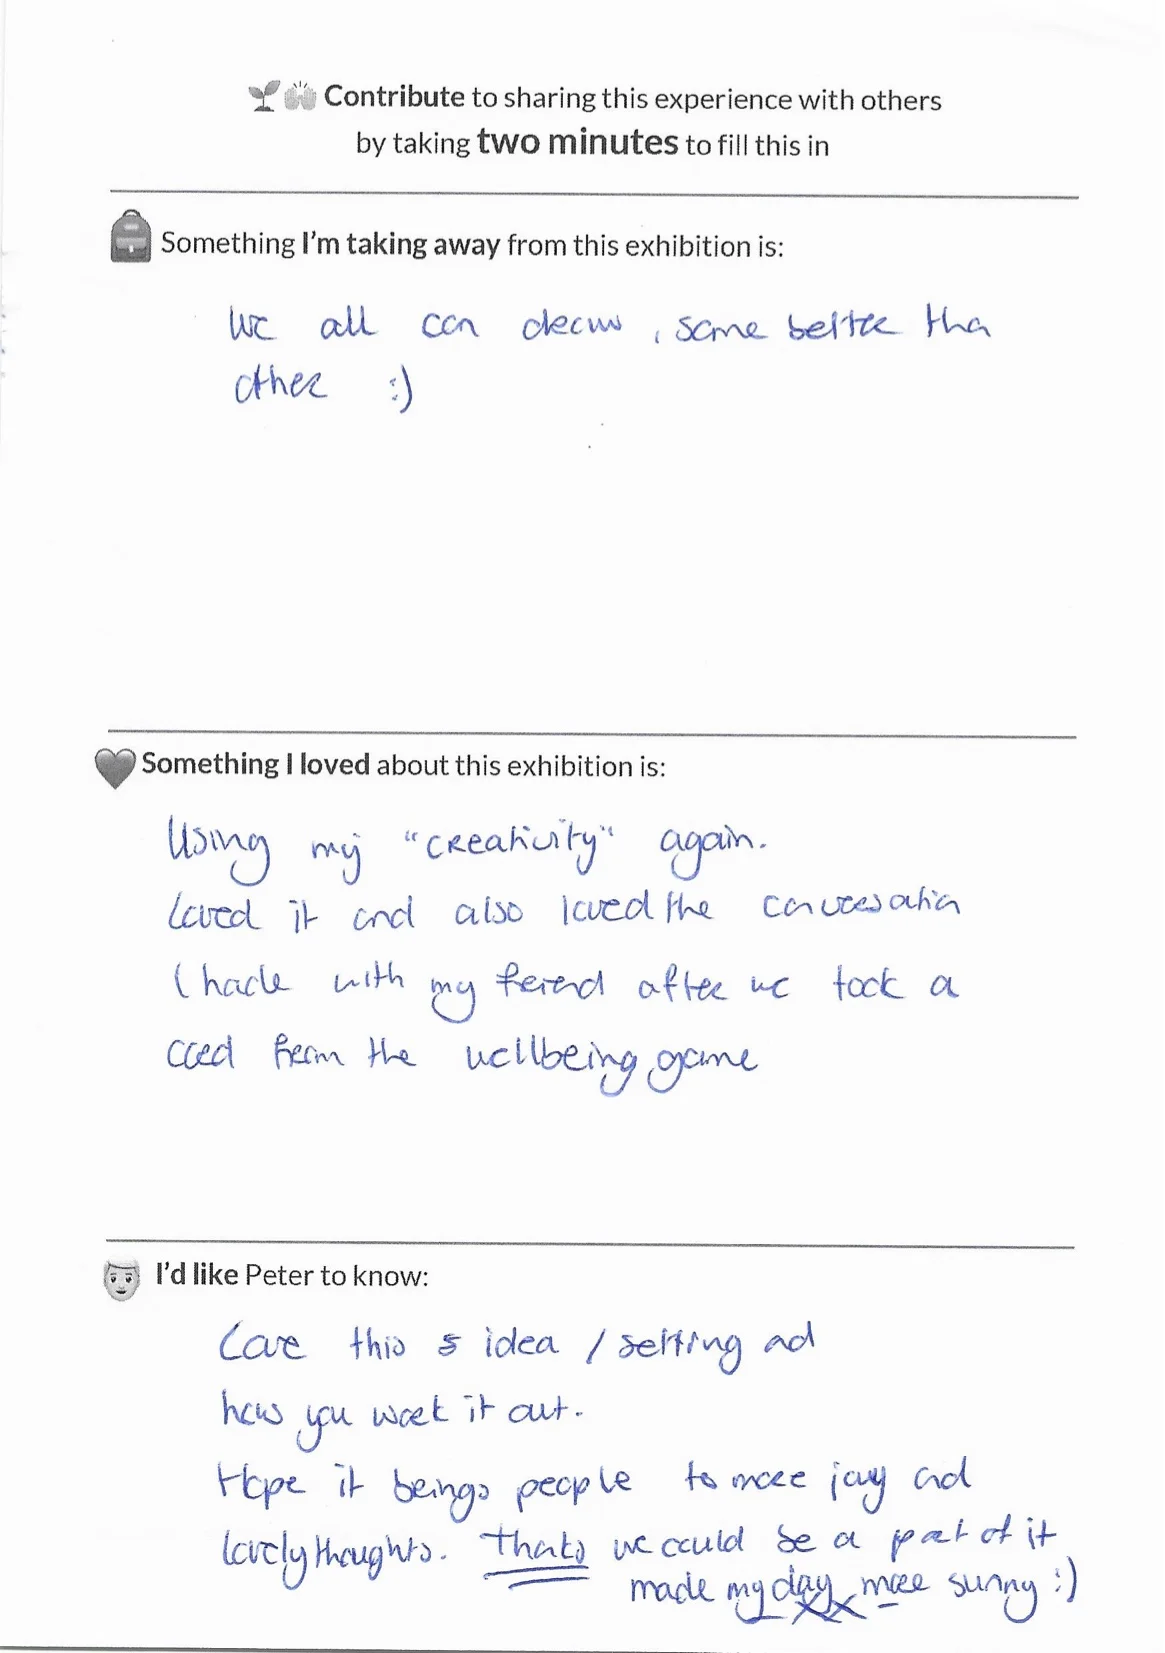 Contribute to sharing this experience with others
by taking two minutes to fill this in
Something I'm taking away from this exhibition is:
We all can draw, some better tha
other :)
Something I loved about this exhibition is:
Using my "creativity" again.
Loved it and also loved the conversation
I hade with my freind after we took a
card from the wellbeing game
I'd like Peter to know:
Love this idea / setting ad
how you work it out.
Hope it brings people to more joy ad
lovely thoughts. thanks we could be a part of it
made my day more sunny :)